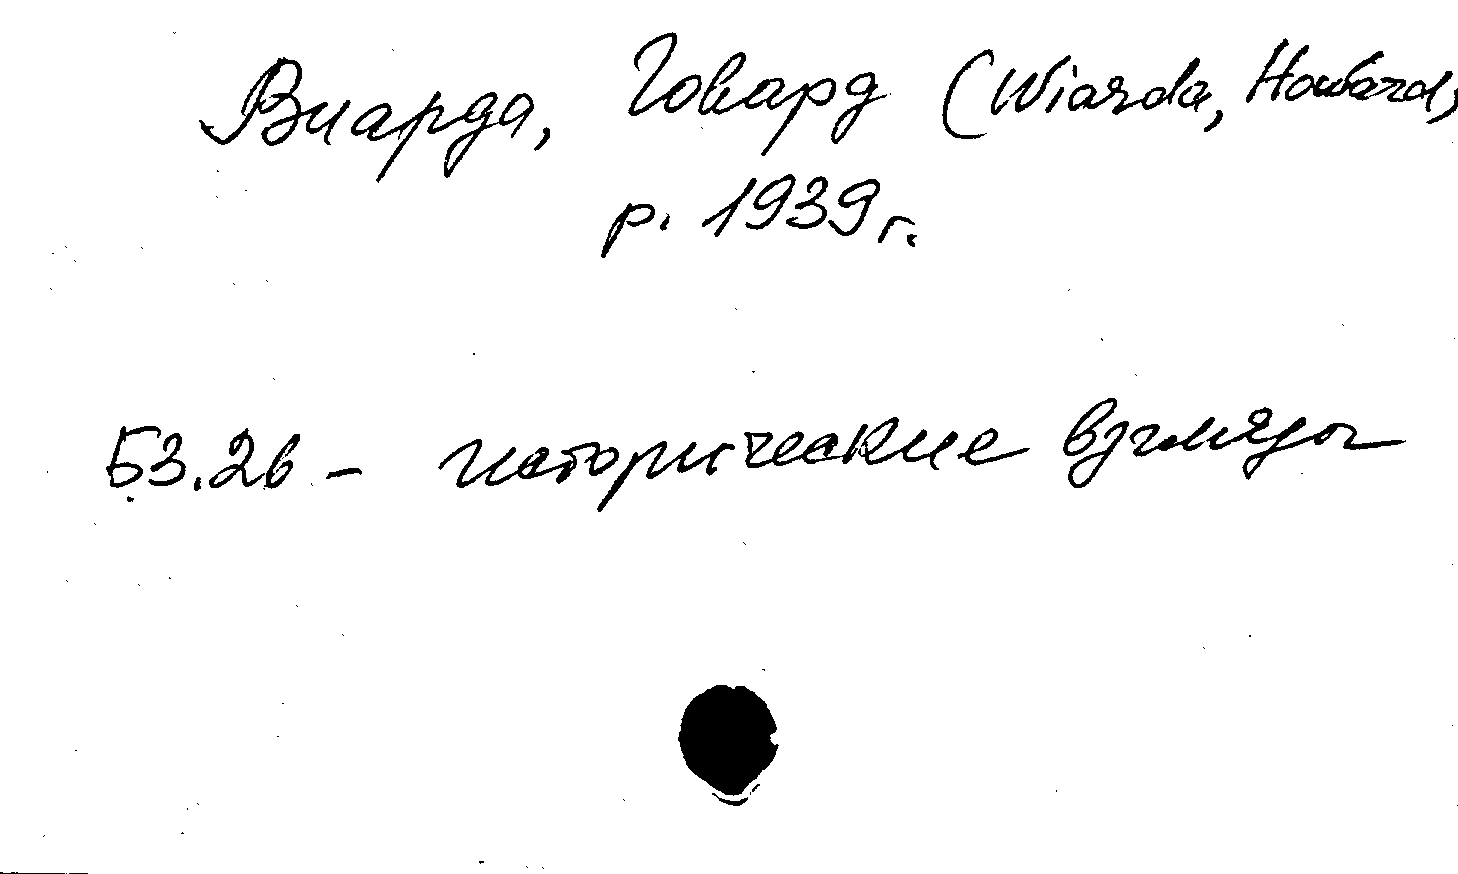 Виарда, Говард (Wiarda, Howard,
р. 1939 г.
Б3.2в - исторические взгляды